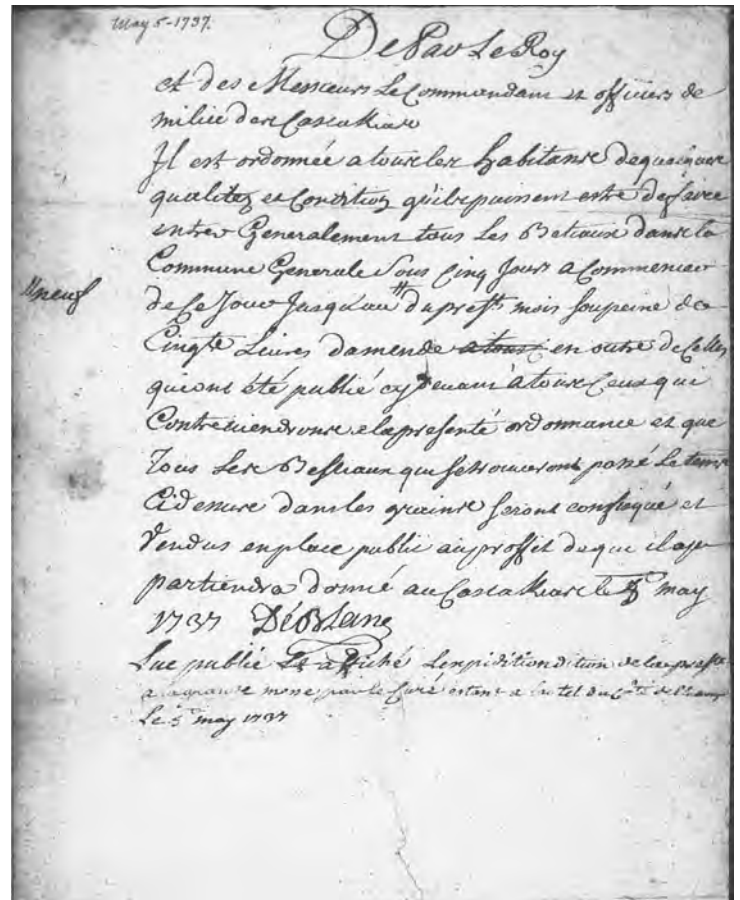 May 5-1737.
De Par Le Roy
et des Messieurs Le Commandant et officiers de
milice des Cascakias
Il est ordonnée a tous les habitans de quelque
qualitez et Condition qu'ils puissent estre de faire
entrer Generalement tous Les Betiaux dans la
Commune Generale Sous Cinq Jours a Commencer
//neuf
de Ce Jour Jusqu'au // du prest mois sou peine de
Cinqte Livres damende a tous en outre de Celles
qui ont été publié cy devant a tous Ceux qui
Contreviendrons a la presente ordonnance et que
Tous Les Bestiaux qui se trouveront passé Le tems
Cidessus dans les grains seront confisqué et
Vendus en place public au proffit de qui il a
partiendra donné au Cascakias le 5 may
1737 DéBLanc
Lue publié Et affiché
a la grande messe par le Curé
Le 5 may 1737